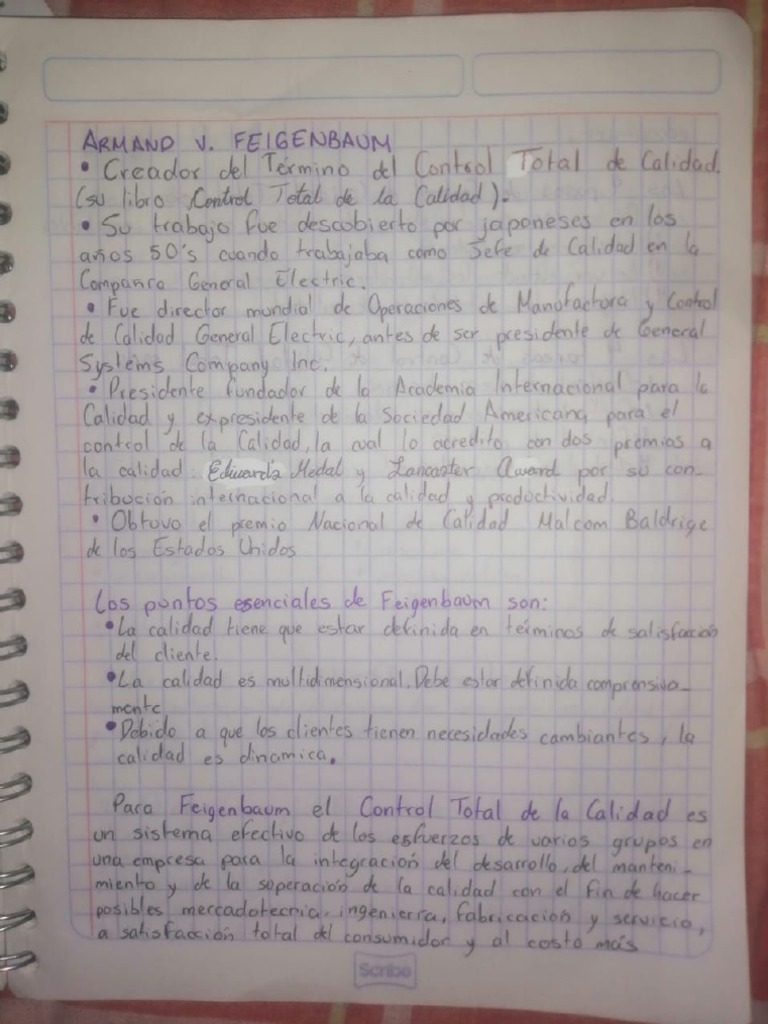 ARMAND V. FEIGENBAUM
• Creador del Término del Control Total de Calidad.
(su libro Control Total de la Calidad).
• Su trabajo fue descubierto por japoneses en los
años 50's cuando trabajaba como Jefe de Calidad en la
Companra General Electric.
• Fue director mundial de Operaciones de Manufactura y Control
de Calidad General Electric, antes de ser presidente de General
Systems Company Inc.
• Presidente fundador de la Academia Internacional para la
Calidad y expresidente de la Sociedad Americana para el
control de la Calidad, la cual lo acredito con dos premios a
la calidad Edward's Medal y Lancaster Award por su con-
tribución internacional a la calidad y productividad.
• Obtuvo el premio Nacional de Calidad Malcom Baldrige
de los Estados Unidos
Los puntos esenciales de Feigenbaum son:
• La calidad tiene que estar definida en términos de satisfacción
del cliente.
• La calidad es multidimensional. Debe estar definida comprensiva-
mente
• Debido a que los clientes tienen necesidades cambiantes, la
calidad es dinamica.
Para Feigenbaum el Control Total de la Calidad es
un sistema efectivo de los esfuerzos de varios grupos en
una empresa para la integración del desarrollo, del manteni-
miento y de la superación de la calidad con el fin de hacer
posibles mercadotecnia, ingenierra, fabricación y servicio,
a satisfacción total del consumidor y al costo más
Scribe